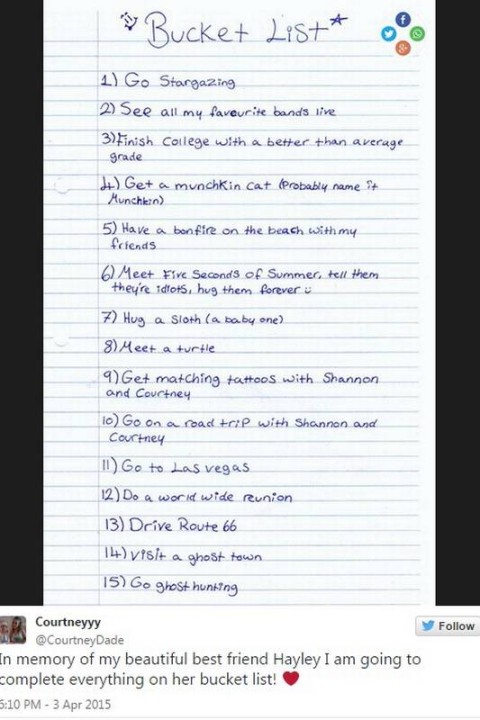 Bucket List
1) Go Stargazing
2) See all my favourite bands live
3) Finish College with a better than average
grade
4) Get a munchkin cat (Probably name it
Munchkin)
5) Have a bonfire on the beach with my
friends
6) Meet Five Seconds of Summer, tell them
they're idiots, hug them forever ü
7) Hug a Sloth (a baby one)
8) Meet a turtle
9) Get matching tattoos with Shannon
and Courtney
10) Go on a road trip with Shannon and
Courtney
11) Go to Las vegas
12) Do a world wide reunion
13) Drive Route 66
14) Visit a ghost town
15) Go ghost hunting
Courtneyyy
@CourtneyDade
Follow
In memory of my beautiful best friend Hayley I am going to
complete everything on her bucket list! ❤
6:10 PM - 3 Apr 2015